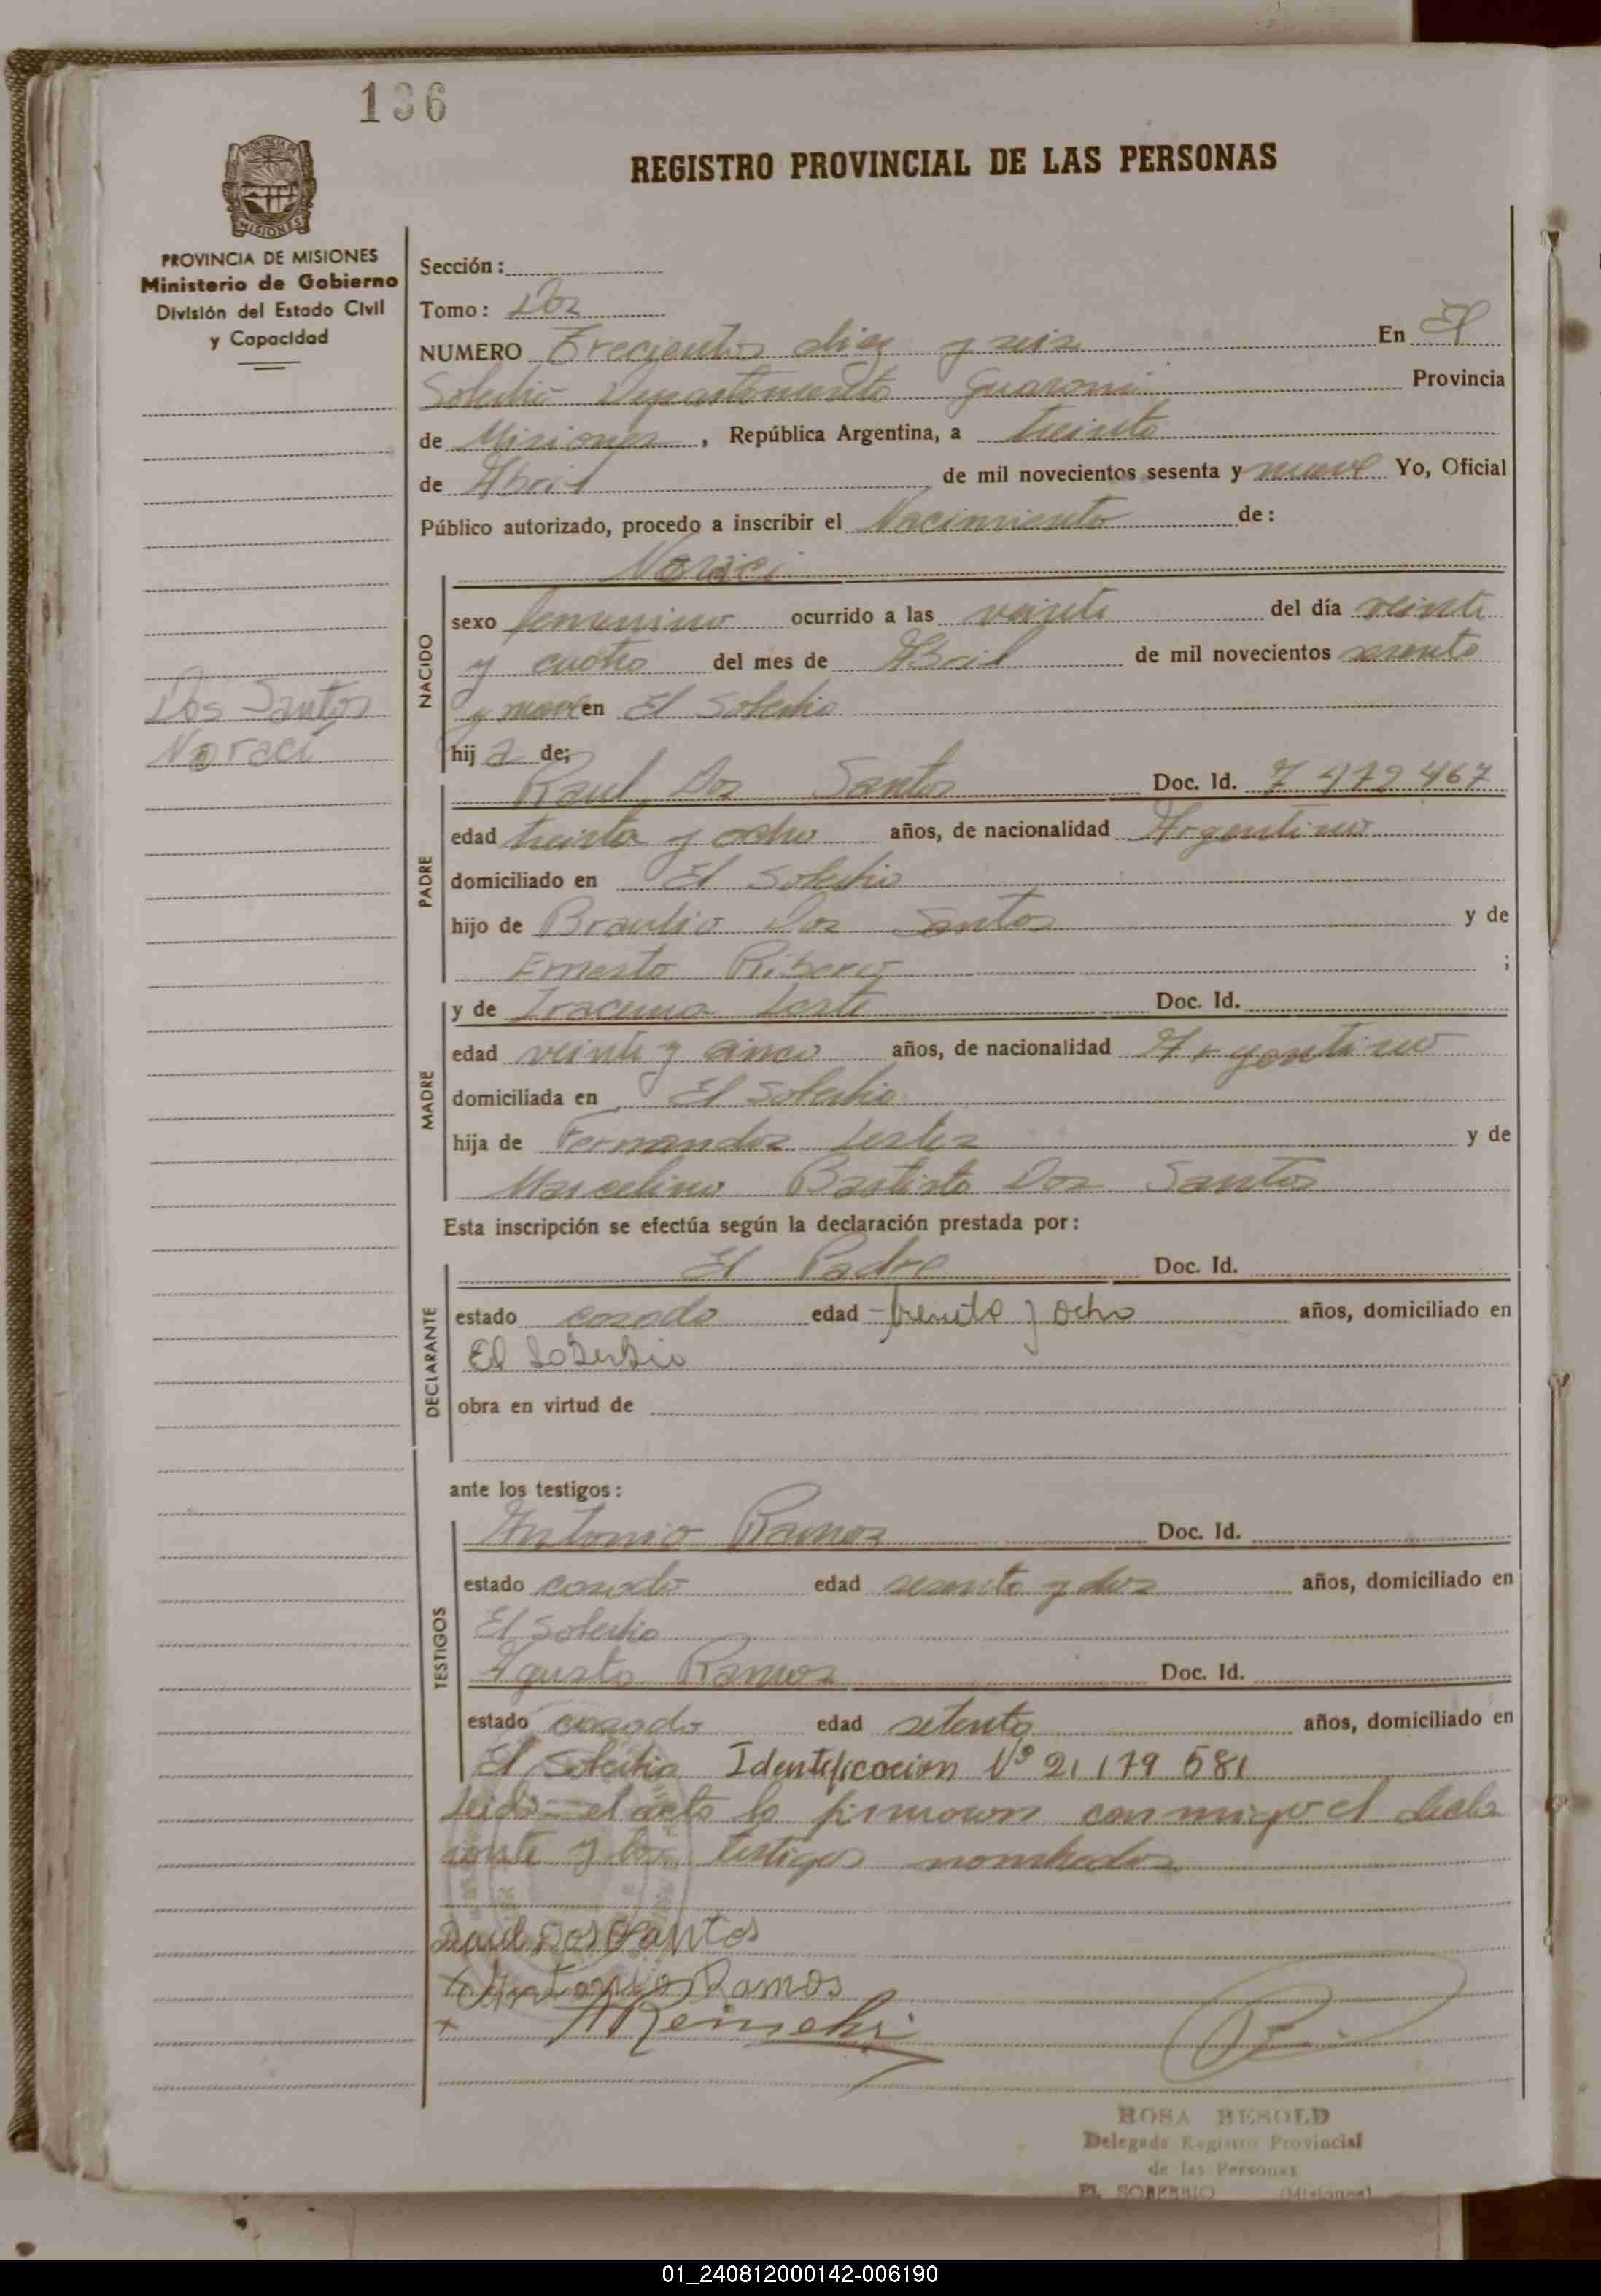 136
REGISTRO PROVINCIAL DE LAS PERSONAS
PROVINCIA DE MISIONES
MISIONES
PROVINCIA DE MISIONES
Ministerio de Gobierno
División del Estado Civil
y Capacidad
Sección:
Tomo: Dos
NUMERO Trecientos diez y seis En El
Soberbio Departamento Guarani Provincia
de Misiones, República Argentina, a treinta
de Abril de mil novecientos sesenta y nueve Yo, Oficial
Público autorizado, procedo a inscribir el Nacimiento de:
Noraci
NACIDO
sexo femenino ocurrido a las veinte del día veinti
y cuatro del mes de Abril de mil novecientos sesenta
y nueve en El Soberbio
Dos Santos
Noraci
hija de;
PADRE
Raul Dos Santos Doc. Id. 7 472 467
edad treinta y ocho años, de nacionalidad Argentino
domiciliado en El Soberbio
hijo de Braulio Dos Santos y de
Ernesta Ribero ;
MADRE
y de Iracema Doc. Id.
edad veinte y cinco años, de nacionalidad Argentino
domiciliada en El Soberbio
hija de Fernandos y de
Marcelino Bastista Dos Santos
Esta inscripción se efectúa según la declaración prestada por:
DECLARANTE
El Padre Doc. Id.
estado casado edad treinta y ocho años, domiciliado en
El Soberbio
obra en virtud de
ante los testigos:
TESTIGOS
Antonio Ramos Doc. Id.
estado casado edad sesenta y dos años, domiciliado en
El Soberbio
Agusto Ramos Doc. Id.
estado casado edad setenta años, domiciliado en
El Soberbio Identificacion Nº 21 179 581
Leido el acta la firmaron con migo el decla
rante y los testigos nombrados
Raul Dos Santos
x Antonio Ramos
x
ROSA RESOLD
Delegada Registro Provincial
de las Personas
EL SOBERBIO (Misiones)
01_240812000142-006190